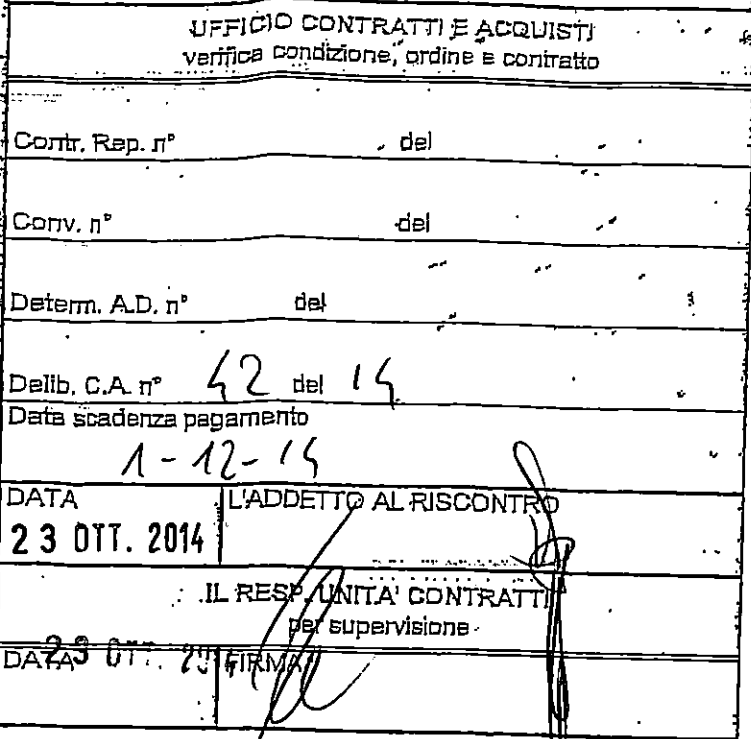 UFFICIO CONTRATTI E ACQUISTI
verifica condizione, ordine e contratto
Contr. Rep. n° del
Conv. n° del
Determ. A.D. n° del
Delib. C.A. n° 42 del 14
Data scadenza pagamento
1-12-14
DATA L'ADDETTO AL RISCONTRO
23 OTT. 2014
IL RESP. UNITA' CONTRATTI
per supervisione
DATA 23 OTT. FIRMA